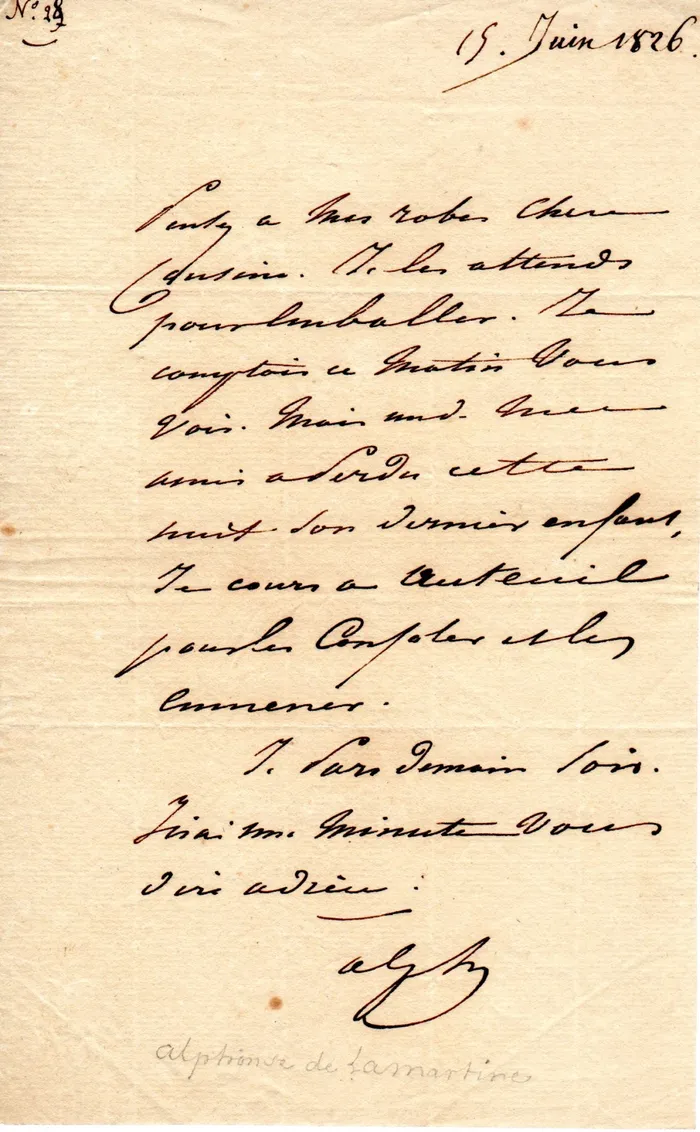 N.° 28
15. Juin 1826.
Pensez a mes robes chere
Cousine. Je les attends
pour emballer. Je
comptois ce matin vous
voir. Mais un de mes
amis a perdu cette
nuit son dernier enfant,
Je cours a auteuil
pour les consoler et les
emmener.
Je pars demain soir.
J'irai une minute vous
dire adieu :
alph
alphonse de Lamartine